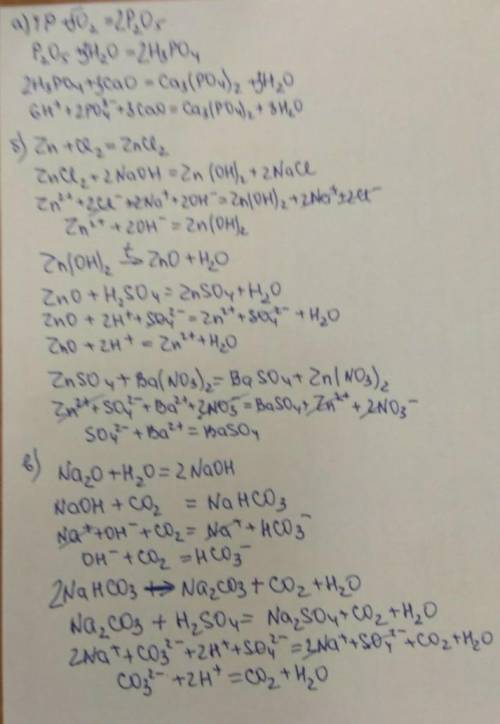 а) 4P + 5O₂ = 2P₂O₅
P₂O₅ + 3H₂O = 2H₃PO₄
2H₃PO₄ + 3CaO = Ca₃(PO₄)₂ + 3H₂O
6H⁺ + 2PO₄³⁻ + 3CaO = Ca₃(PO₄)₂ + 3H₂O
б) Zn + Cl₂ = ZnCl₂
ZnCl₂ + 2NaOH = Zn(OH)₂ + 2NaCl
Zn²⁺ + 2Cl⁻ + 2Na⁺ + 2OH⁻ = Zn(OH)₂ + 2Na⁺ + 2Cl⁻
Zn²⁺ + 2OH⁻ = Zn(OH)₂
Zn(OH)₂ t→ ZnO + H₂O
ZnO + H₂SO₄ = ZnSO₄ + H₂O
ZnO + 2H⁺ + SO₄²⁻ = Zn²⁺ + SO₄²⁻ + H₂O
ZnO + 2H⁺ = Zn²⁺ + H₂O
ZnSO₄ + Ba(NO₃)₂ = BaSO₄ + Zn(NO₃)₂
Zn²⁺ + SO₄²⁻ + Ba²⁺ + 2NO₃⁻ = BaSO₄ + Zn²⁺ + 2NO₃⁻
SO₄²⁻ + Ba²⁺ = BaSO₄
в) Na₂O + H₂O = 2NaOH
NaOH + CO₂ = NaHCO₃
Na⁺ + OH⁻ + CO₂ = Na⁺ + HCO₃⁻
OH⁻ + CO₂ = HCO₃⁻
2NaHCO₃ → Na₂CO₃ + CO₂ + H₂O
Na₂CO₃ + H₂SO₄ = Na₂SO₄ + CO₂ + H₂O
2Na⁺ + CO₃²⁻ + 2H⁺ + SO₄²⁻ = 2Na⁺ + SO₄²⁻ + CO₂ + H₂O
CO₃²⁻ + 2H⁺ = CO₂ + H₂O